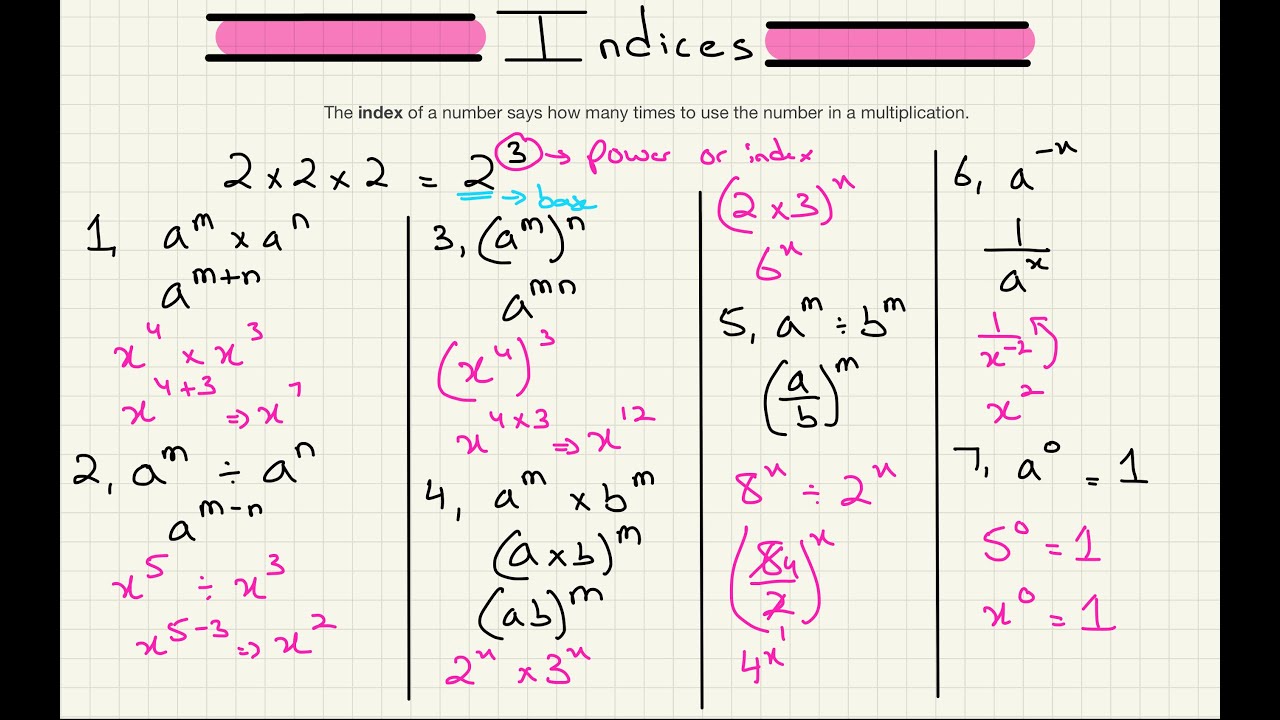 Indices
The index of a number says how many times to use the number in a multiplication.
2 × 2 × 2 = 2³ → power or index
→ base
1, aᵐ × aⁿ
aᵐ⁺ⁿ
x⁴ × x³
x⁴⁺³ ⇒ x⁷
2, aᵐ ÷ aⁿ
aᵐ⁻ⁿ
x⁵ ÷ x³
x⁵⁻³ ⇒ x²
3, (aᵐ)ⁿ
aᵐⁿ
(x⁴)³
x^4×3 ⇒ x¹²
4, aᵐ × bᵐ
(a × b)ᵐ
(ab)ᵐ
2ˣ × 3ˣ
(2 × 3)ˣ
6ˣ
5, aᵐ ÷ bᵐ
(a/b)ᵐ
8ˣ ÷ 2ˣ
(8 4/2 1)ˣ
4ˣ
6, a⁻ˣ
1/aˣ
1/x⁻²
x²
7, a⁰ = 1
5⁰ = 1
x⁰ = 1